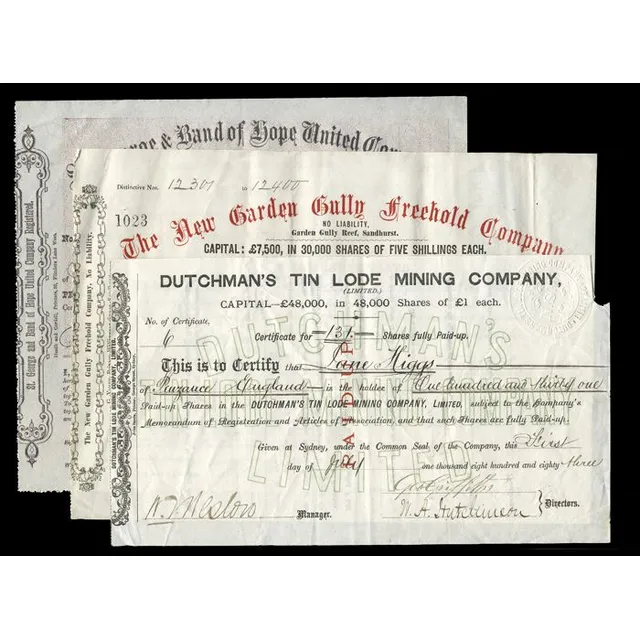 & Band of Hope United Com
St. George and Band of Hope United Company Registered.
Distinctive Nos. 12301 to 12400
1023
The New Garden Gully Freehold Company
NO LIABILITY,
Garden Gully Reef, Sandhurst.
CAPITAL: £7,500, in 30,000 SHARES OF FIVE SHILLINGS EACH.
The New Garden Gully Freehold Company, No Liability.
DUTCHMAN'S TIN LODE MINING COMPANY,
(LIMITED.)
CAPITAL—£48,000, in 48,000 Shares of £1 each.
No. of Certificate,
6
Certificate for 131 Shares fully Paid-up.
This is to Certify that Jane Higgs
of Penzance England is the holder of One hundred and thirty one
Paid-up Shares in the DUTCHMAN'S TIN LODE MINING COMPANY, LIMITED, subject to the Company's
Memorandum of Registration and Articles of Association, and that such Shares are fully Paid-up.
Given at Sydney, under the Common Seal of the Company, this First
day of July one thousand eight hundred and eighty three
W. H. Hutchinson
Manager.
Directors.
PAID UP
DUTCHMAN'S
LIMITED